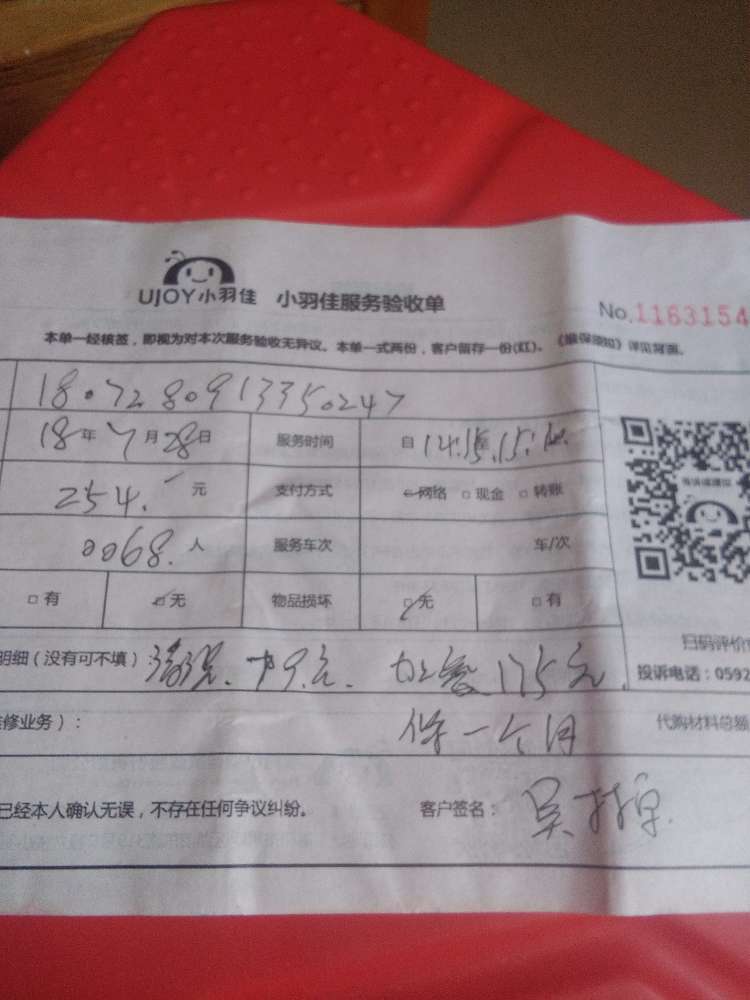 UJOY小羽佳 小羽佳服务验收单 No.1163154
本单一经核签，即视为对本次服务验收无异议。本单一式两份，客户留存一份(红)。《维保须知》详见背面。
1807280913350247
18年7月28日 服务时间 自14:15至15:
254.- 元 支付方式 网络 □现金 □转账
0068. 人 服务车次 车/次
□有 □无 物品损坏 □无 □有
明细（没有可不填）：清洗 79元. 加氨 175元 扫码评价
投诉电话：0592
维修业务）： 保一个月 代购材料总额
已经本人确认无误，不存在任何争议纠纷。 客户签名：吴